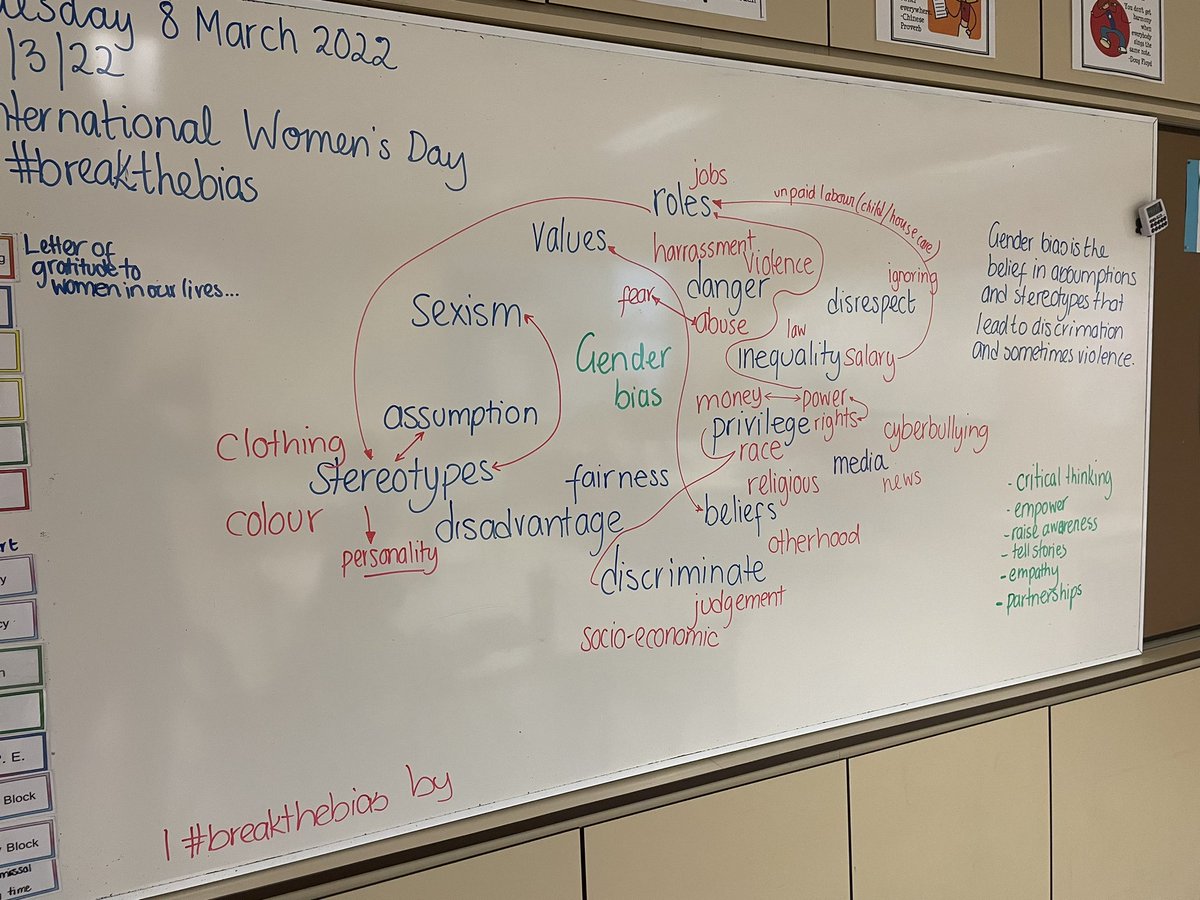 8 March 2022
/3/22
Women's Day
#breakthebias
Letter of
gratitude to
women in our lives...
jobs
roles
unpaid labour (child/house care)
values
harrassment
violence
ignoring
danger
fear
disrespect
sexism
abuse
law
Gender
bias
inequality salary
assumption
money
power
privilege rights
cyberbullying
Clothing
race
media
stereotypes
fairness
religious
news
colour
disadvantage
beliefs
personality
otherhood
discriminate
judgement
socio-economic
Gender bias is the
belief in assumptions
and stereotypes that
lead to discrimation
and sometimes violence.
- critical thinking
- empower
- raise awareness
- tell stories
- empathy
- partnerships
I #breakthebias by
P. E.
Block
Block
time
everywhere
-Chinese
Proverb
You don't get
harmony
when
everybody
sings the
same note.
-Doug Floyd